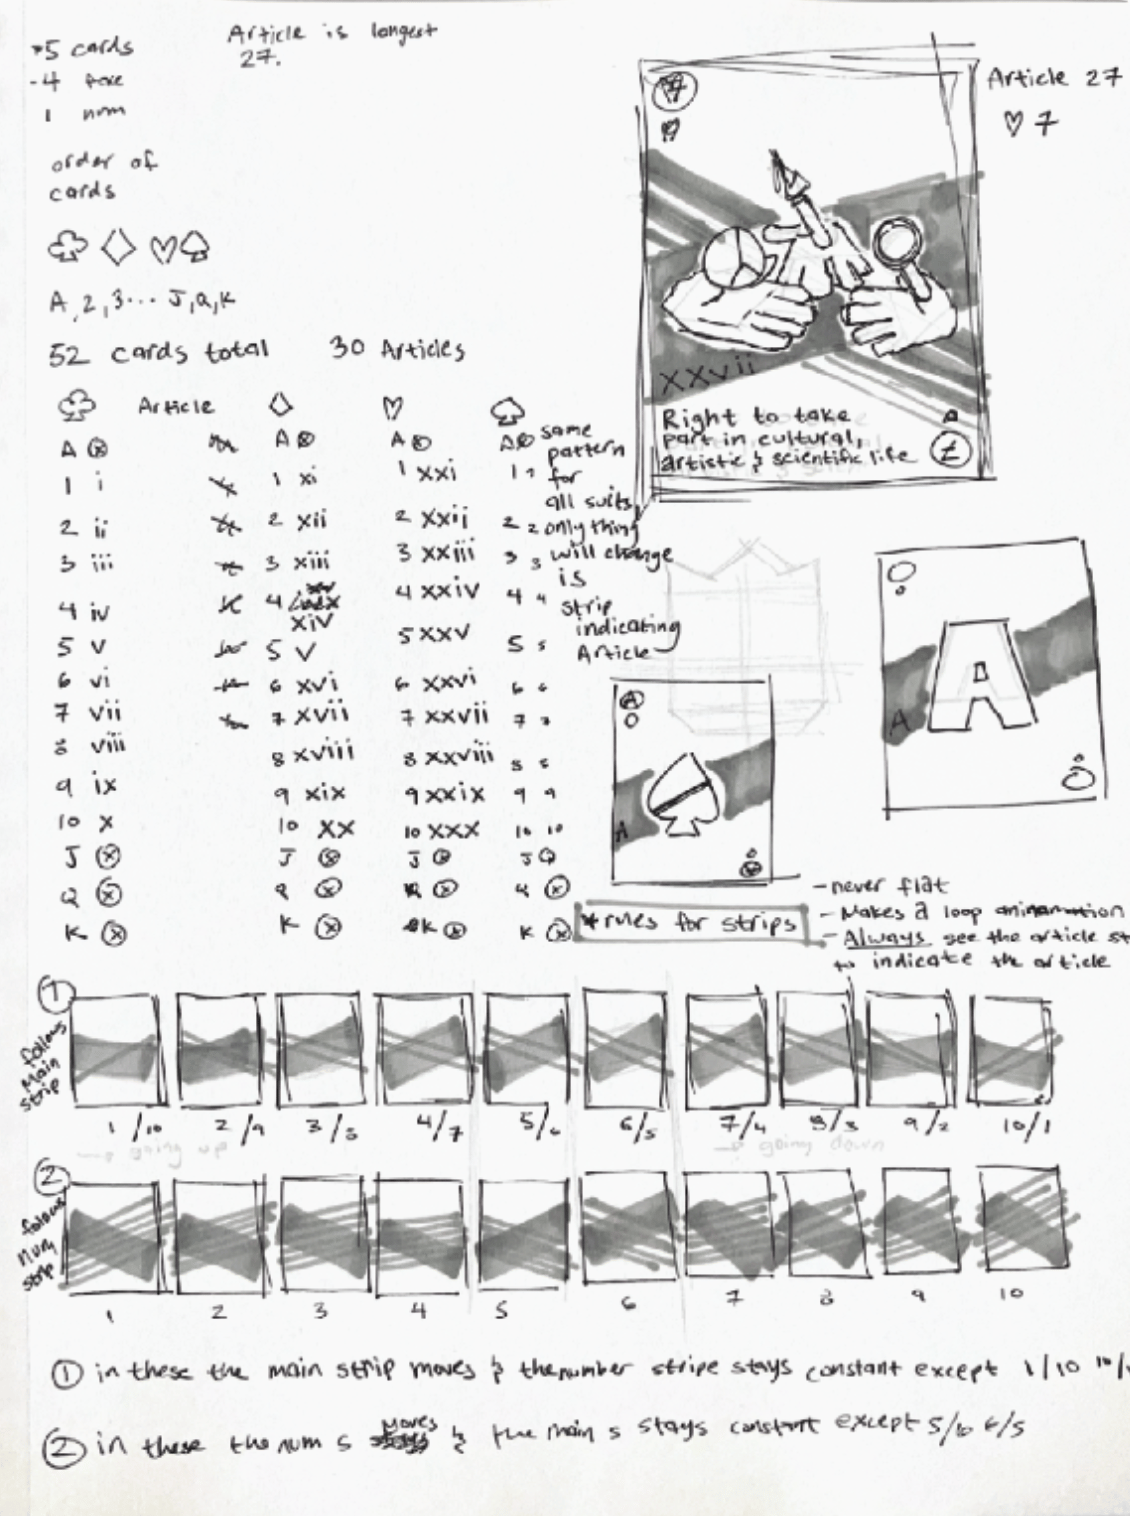 5 cards
-4 face
1 num
Article is longest
27.
order of
cards
A, 2, 3... J, Q, K
52 cards total
30 Articles
Article 27
♡ 7
xxvii
Right to take
part in cultural,
artistic & scientific life
7
♧ Article ♢ ♡ ♤
A ⓧ A ⓧ A ⓧ A ⓧ
1 i 1 xi 1 xxi 1 1
2 ii 2 xii 2 xxii 2 2
3 iii 3 xiii 3 xxiii 3 3
4 iv 4 xiv 4 xxiv 4 4
5 v 5 v 5 xxv 5 5
6 vi 6 xvi 6 xxvi 6 6
7 vii 7 xvii 7 xxvii 7 7
8 viii 8 xviii 8 xxviii 8 8
9 ix 9 xix 9 xxix 9 9
10 x 10 xx 10 xxx 10 10
J ⓧ J ⓧ J ⓧ J ⓧ
Q ⓧ Q ⓧ Q ⓧ Q ⓧ
K ⓧ K ⓧ K ⓧ K ⓧ
same
pattern
for
all suits
only thing
will change
is
strip
indicating
Article
A
A
A
A
*rules for strips
-never flat
-Makes a loop
-Always see the article
to indicate the article
①
follows
Main
strip
1/10 2/9 3/8 4/7 5/6 6/5 7/4 8/3 9/2 10/1
→ going up
→ going down
②
follows
num
strip
1 2 3 4 5 6 7 8 9 10
① in these the main strip moves & the number stripe stays constant except 1/10
② in these the num s moves & the main s stays constant except 5/6 6/5